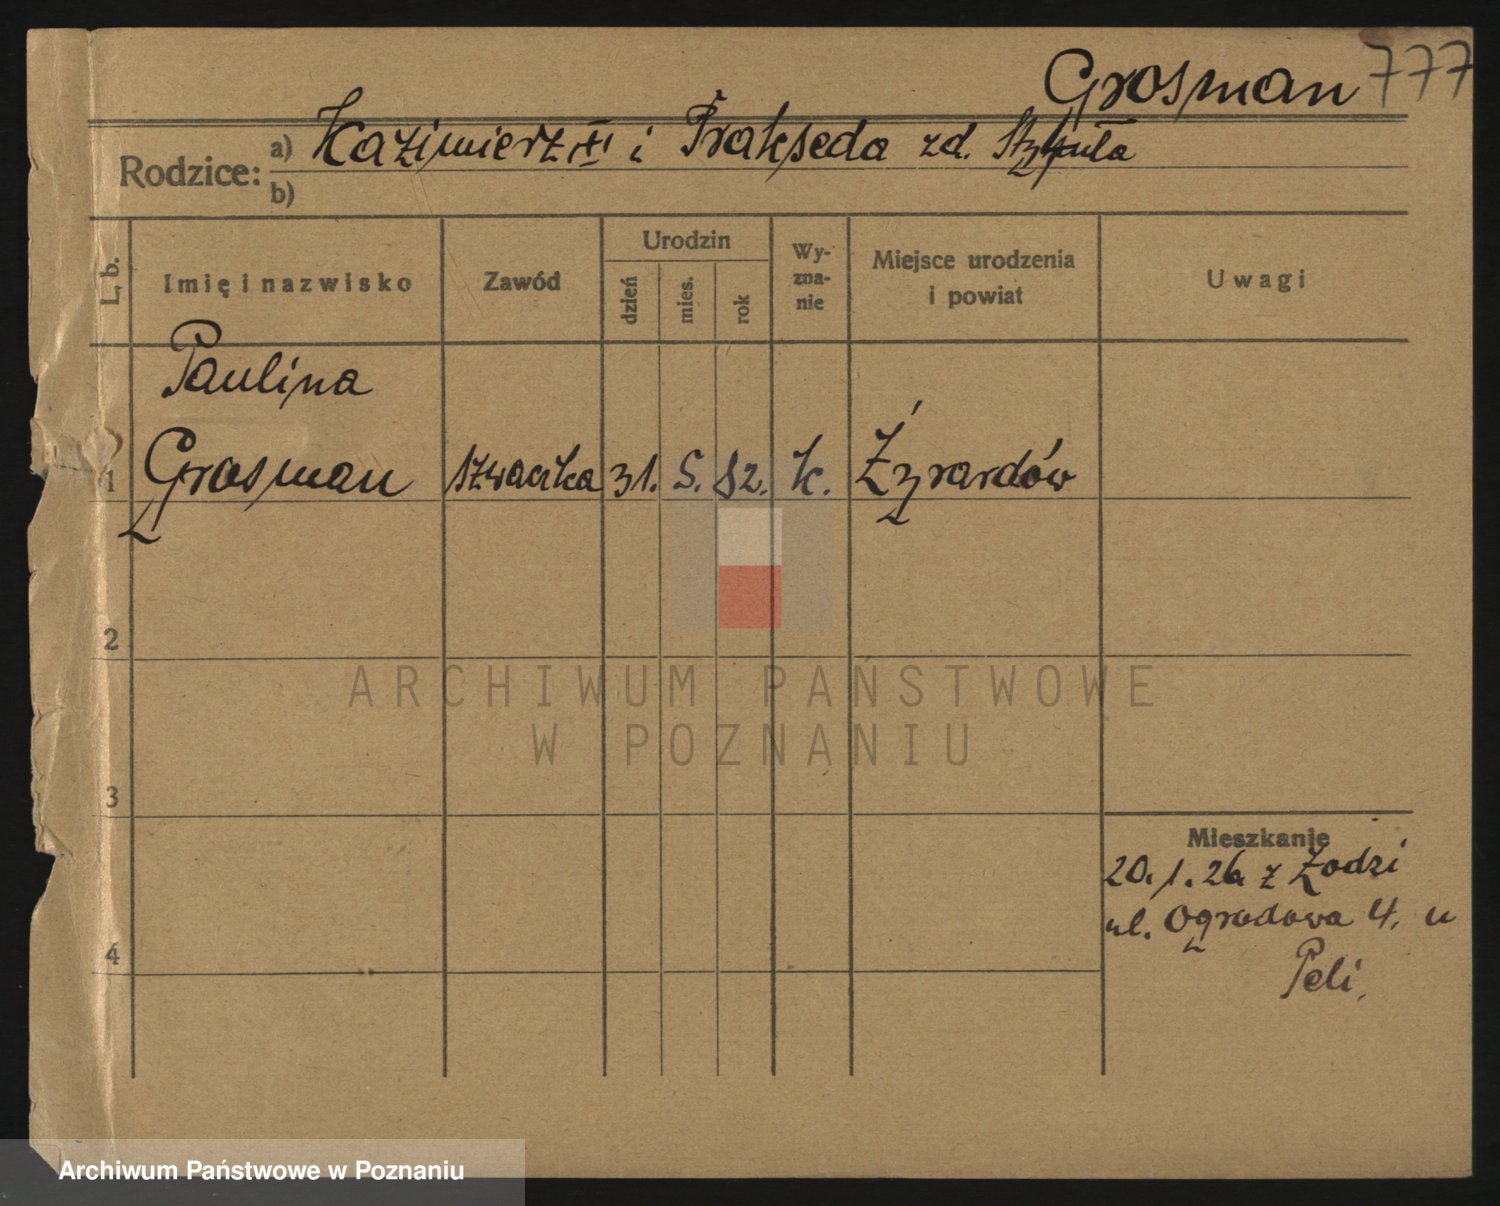 Grosman 777
Rodzice: a) Kazimierz i Prakseda zd.
b)
L. b.
Imię i nazwisko
Zawód
Urodzin
dzień
mies.
rok
Wy-
zna-
nie
Miejsce urodzenia
i powiat
Uwagi
Paulina
1 Grosman szwaczka 31. 5. 82. k. Żyrardów
2
3
4
Mieszkanie
20. 1. 26. z Łodzi
ul. Ogrodowa 4. u
Peli.
ARCHIWUM PAŃSTWOWE
W POZNANIU
Archiwum Państwowe w Poznaniu